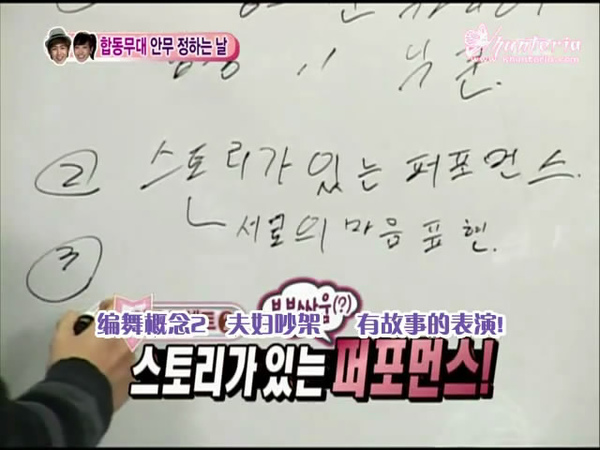 합동무대 안무 정하는 날
khuntoria
www.khuntoria.com
② 스토리가 있는 퍼포먼스.
서로의 마음 표현.
③
부부싸움(?)
编舞概念2 夫妇吵架 有故事的表演!
스토리가 있는 퍼포먼스!